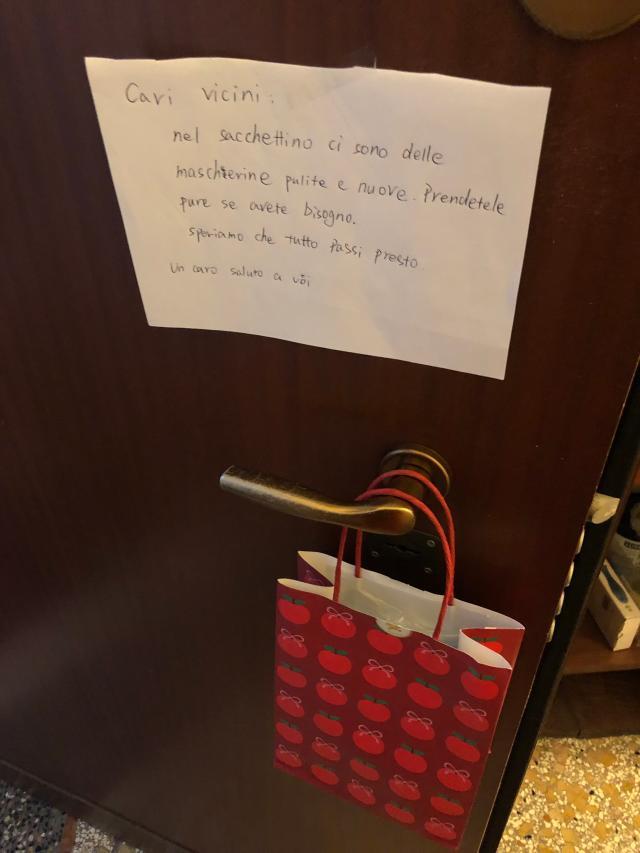 Cari vicini:
nel sacchettino ci sono delle
maschierine pulite e nuove. Prendetele
pure se avete bisogno.
speriamo che tutto passi presto
un caro saluto a voi